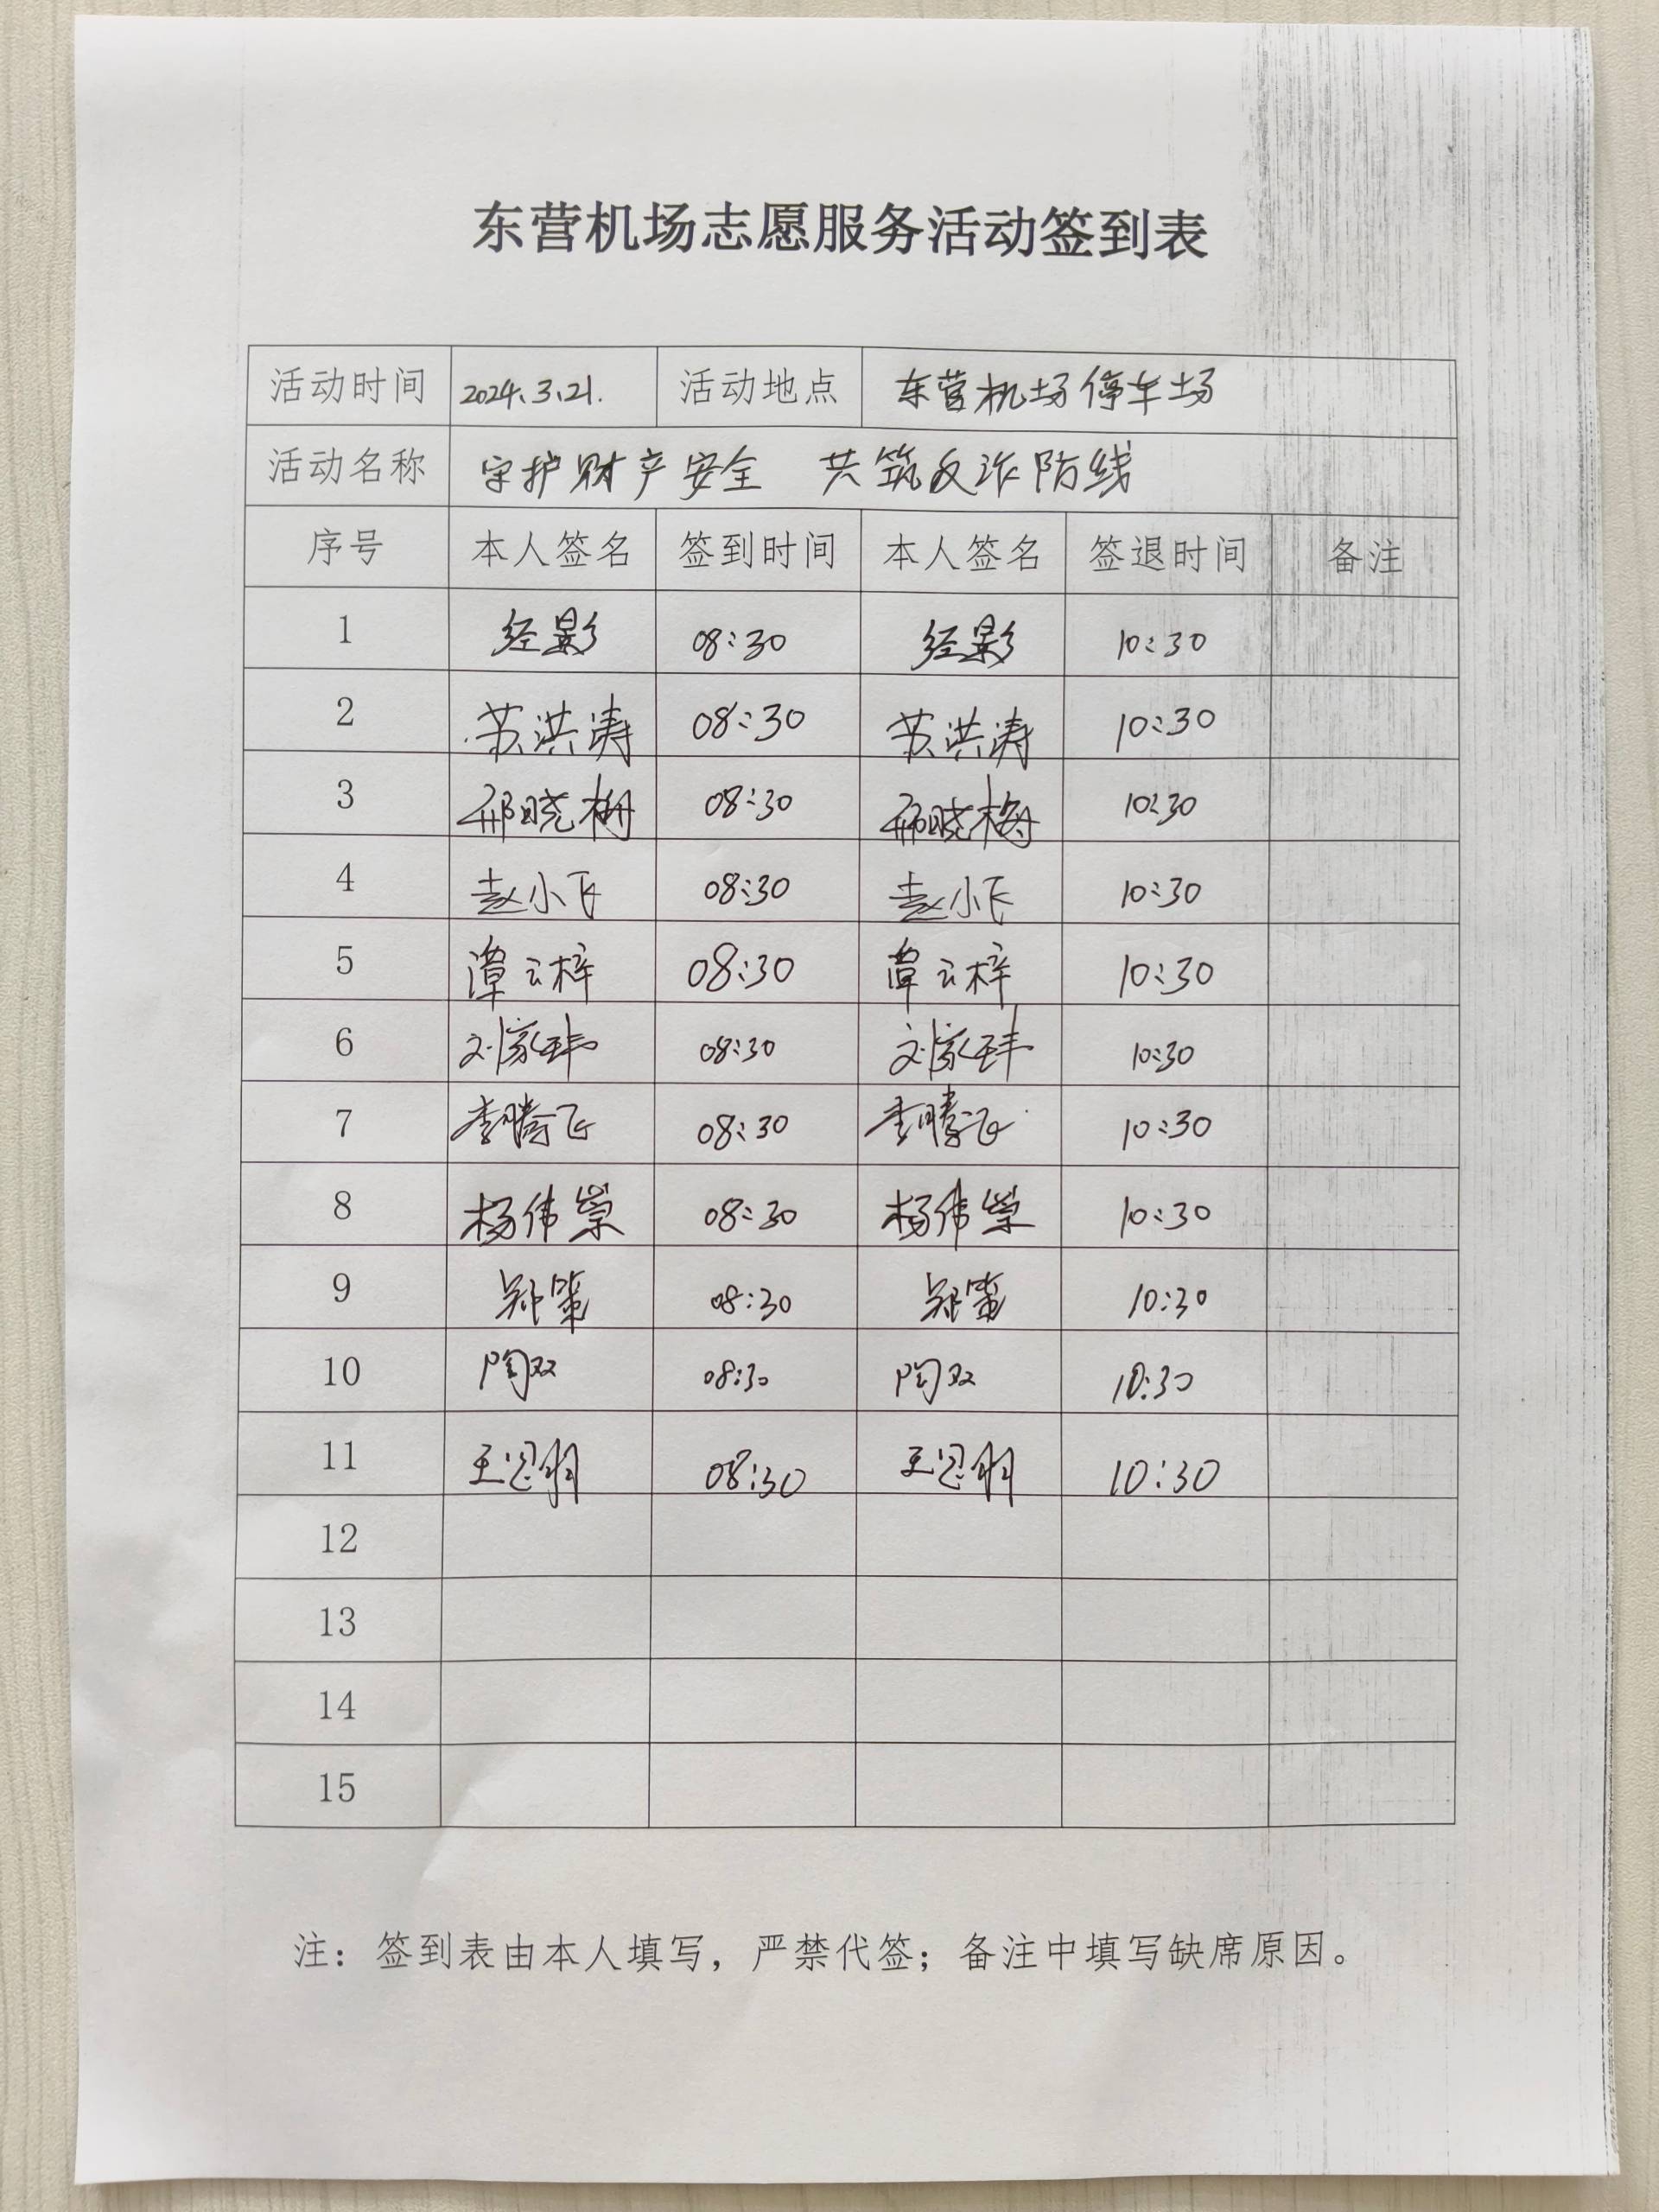 东营机场志愿服务活动签到表
活动时间 2024.3.21. 活动地点 东营机场停车场
活动名称 守护财产安全 共筑反诈防线
序号 本人签名 签到时间 本人签名 签退时间 备注
1 经影 08:30 经影 10:30
2 苏洪涛 08:30 苏洪涛 10:30
3 邢晓梅 08:30 邢晓梅 10:30
4 赵小飞 08:30 赵小飞 10:30
5 云梓 08:30 云梓 10:30
6 刘家玮 08:30 刘家玮 10:30
7 李腾飞 08:30 李腾飞 10:30
8 杨伟崇 08:30 杨伟崇 10:30
9 郑策 08:30 郑策 10:30
10 陶双 08:30 陶双 10:30
11 王 08:30 王 10:30
12
13
14
15
注：签到表由本人填写，严禁代签；备注中填写缺席原因。